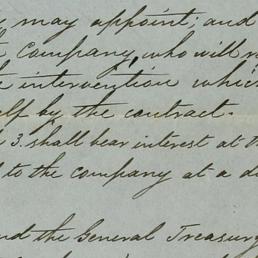 may appoint; and
Company, who will
intervention which
by the contract.
3. shall bear interest at the
to the company at a
and the General Treasury